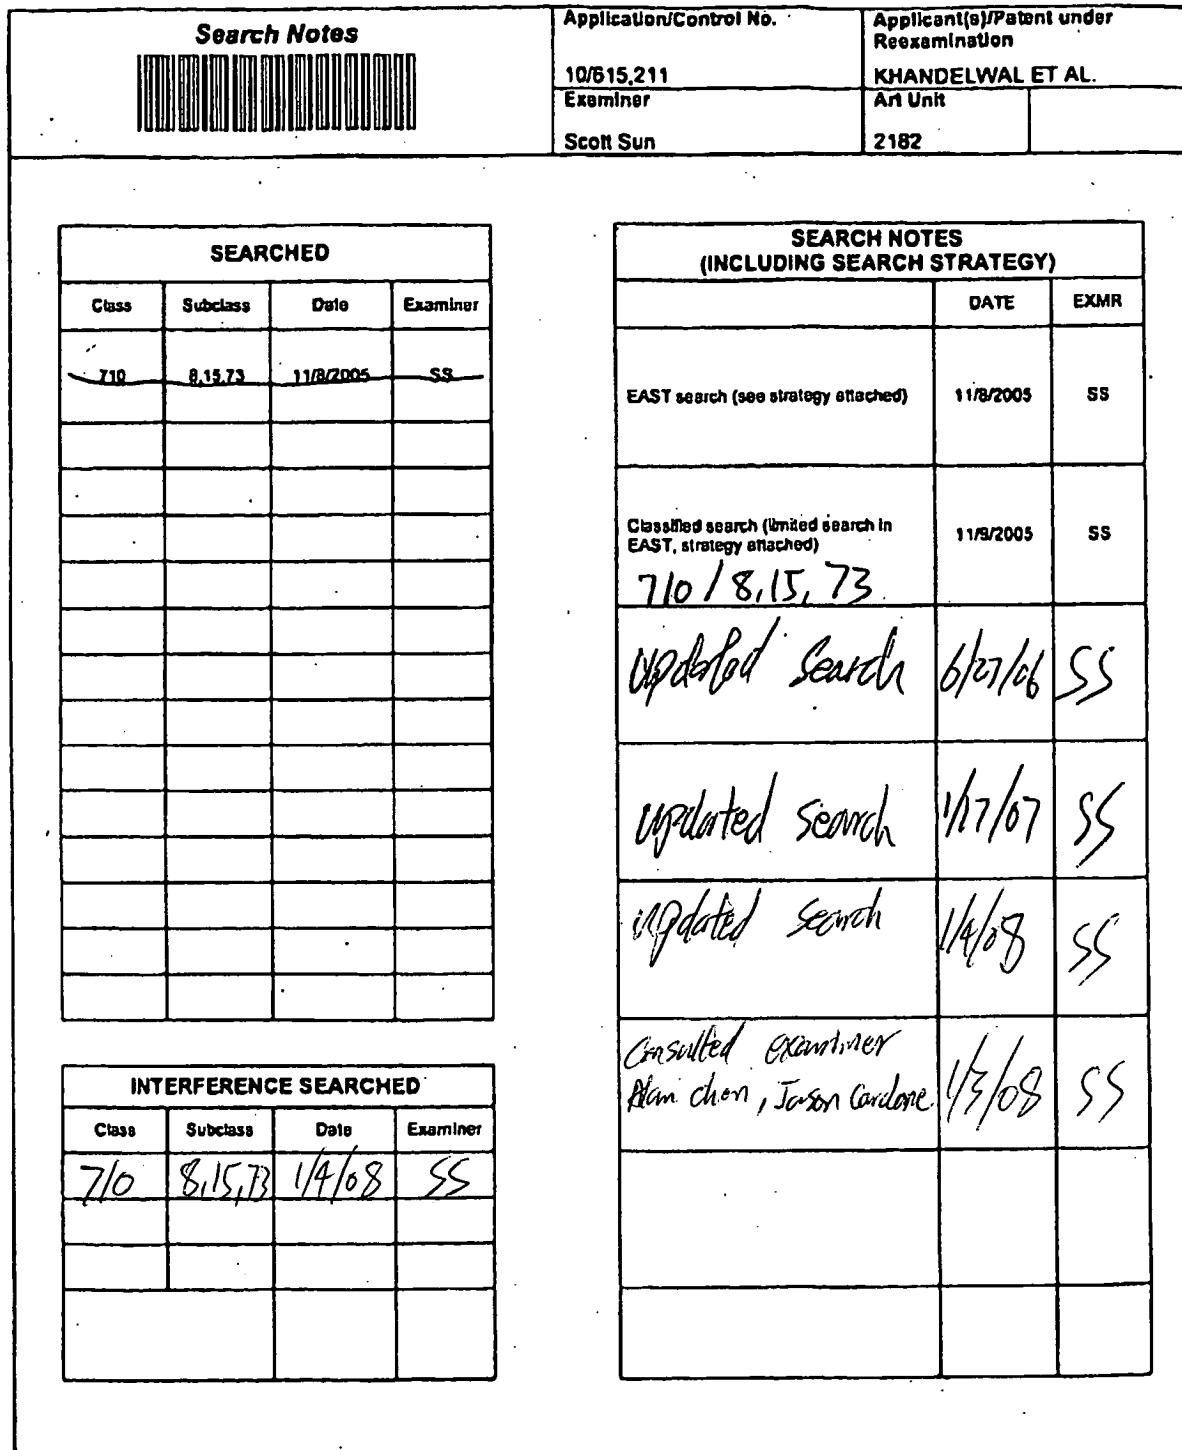 Search Notes
Application/Control No.
10/615,211
Applicant(s)/Patent under
Reexamination
KHANDELWAL ET AL.
Examiner
Scott Sun
Art Unit
2182
SEARCHED
Class Subclass Date Examiner
710 8,15,73 11/8/2005 SS
INTERFERENCE SEARCHED
Class Subclass Date Examiner
710 8,15,73 1/4/08 SS
SEARCH NOTES
(INCLUDING SEARCH STRATEGY)
DATE EXMR
EAST search (see strategy attached) 11/8/2005 SS
Classified search (limited search in
EAST, strategy attached) 11/9/2005 SS
710 / 8,15,73
updated search 6/27/06 SS
updated search 1/17/07 SS
updated search 1/4/08 SS
Consulted examiner
Alan chen, Jason Cardone. 1/3/08 SS